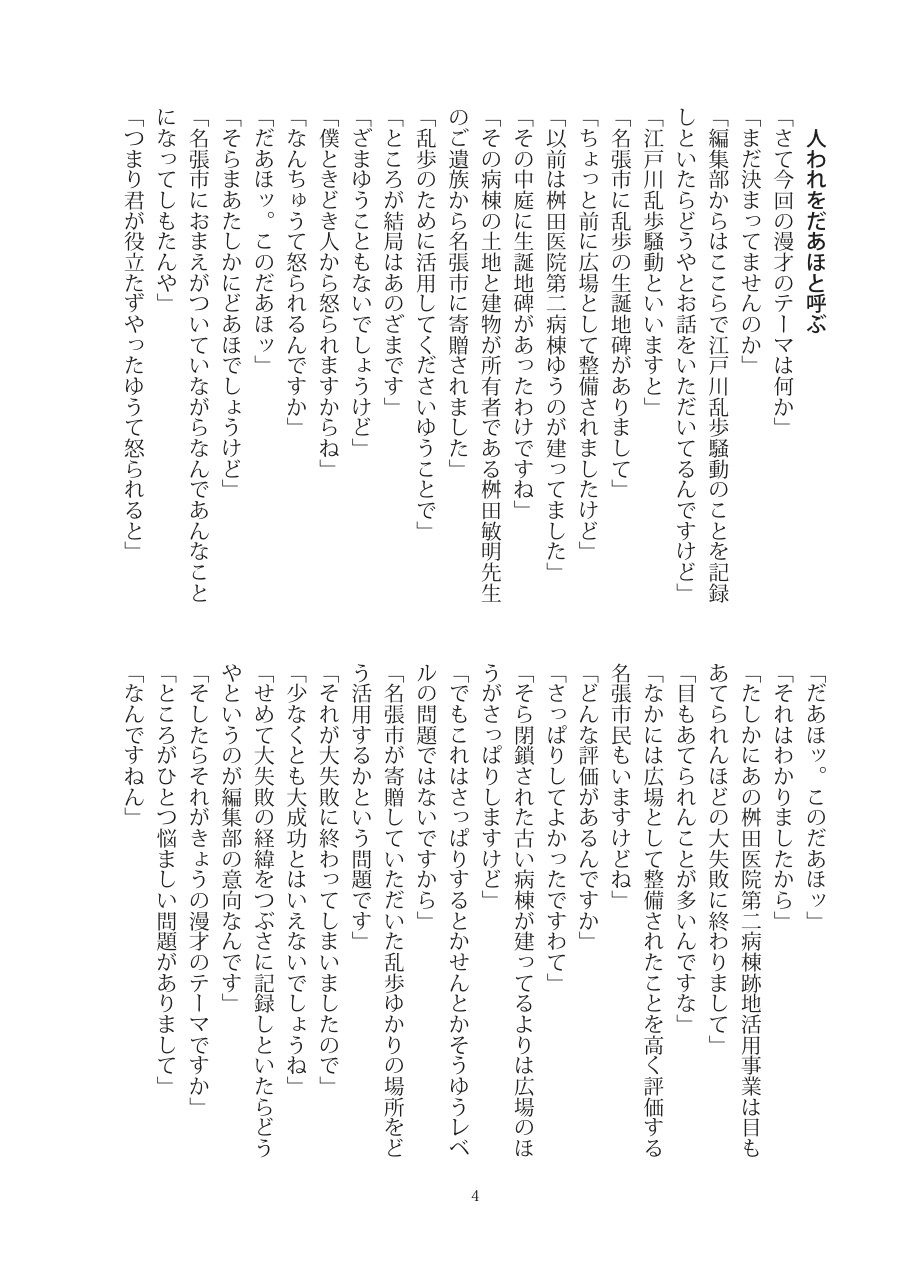 人われをだあほと呼ぶ
「さて今回の漫才のテーマは何か」
「まだ決まってませんのか」
「編集部からはここらで江戸川乱歩騒動のことを記録
しといたらどうやとお話をいただいてるんですけど」
「江戸川乱歩騒動といいますと」
「名張市に乱歩の生誕地碑がありまして」
「ちょっと前に広場として整備されましたけど」
「以前は桝田医院第二病棟ゆうのが建ってました」
「その中庭に生誕地碑があったわけですね」
「その病棟の土地と建物が所有者である桝田敏明先生
のご遺族から名張市に寄贈されました」
「乱歩のために活用してくださいゆうことで」
「ところが結局はあのざまです」
「ざまゆうこともないでしょうけど」
「僕ときどき人から怒られますからね」
「なんちゅうて怒られるんですか」
「だあほッ。このだあほッ」
「そらまあたしかにどあほでしょうけど」
「名張市におまえがついていながらなんであんなこと
になってしもたんや」
「つまり君が役立たずやったゆうて怒られると」
「だあほッ。このだあほッ」
「それはわかりましたから」
「たしかにあの桝田医院第二病棟跡地活用事業は目も
あてられんほどの大失敗に終わりまして」
「目もあてられんことが多いんですな」
「なかには広場として整備されたことを高く評価する
名張市民もいますけどね」
「どんな評価があるんですか」
「さっぱりしてよかったですわて」
「そら閉鎖された古い病棟が建ってるよりは広場のほ
うがさっぱりしますけど」
「でもこれはさっぱりするとかせんとかそうゆうレベ
ルの問題ではないですから」
「名張市が寄贈していただいた乱歩ゆかりの場所をど
う活用するかという問題です」
「それが大失敗に終わってしまいましたので」
「少なくとも大成功とはいえないでしょうね」
「せめて大失敗の経緯をつぶさに記録しといたらどう
やというのが編集部の意向なんです」
「そしたらそれがきょうの漫才のテーマですか」
「ところがひとつ悩ましい問題がありまして」
「なんですねん」
4